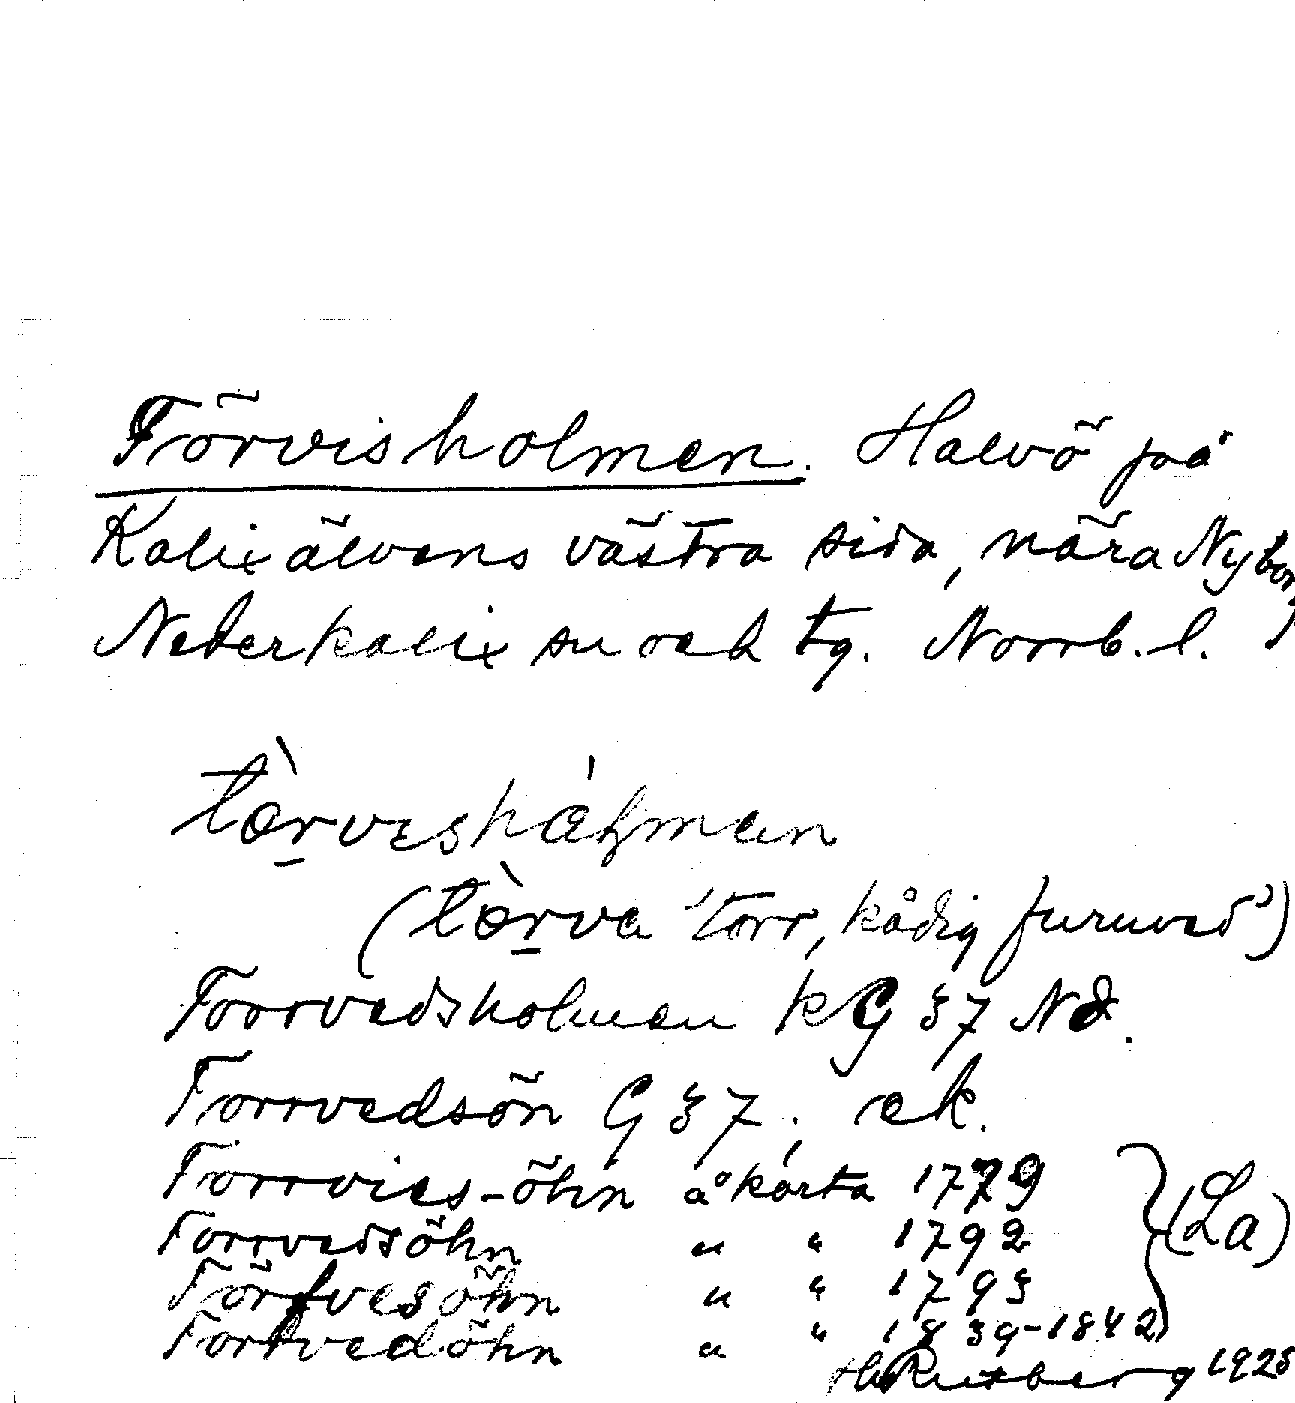 Törvisholmen. Halvö på
Kalixälvens västra sida, nära Nyborg
Nederkalix sn och tg. Norrb. l.
(tə̀rva 'torr, kådig furuved')
Torrvedsholmen kG 37 Nd.
Torrvedsön G 37; ek.
Torrvies-öhn å karta 1779
Torrvedsöhn " " 1792 } (La)
Törfvesöhn " " 1793
Tortvedöhn " " 1839-1842
Hj Rutberg 1928